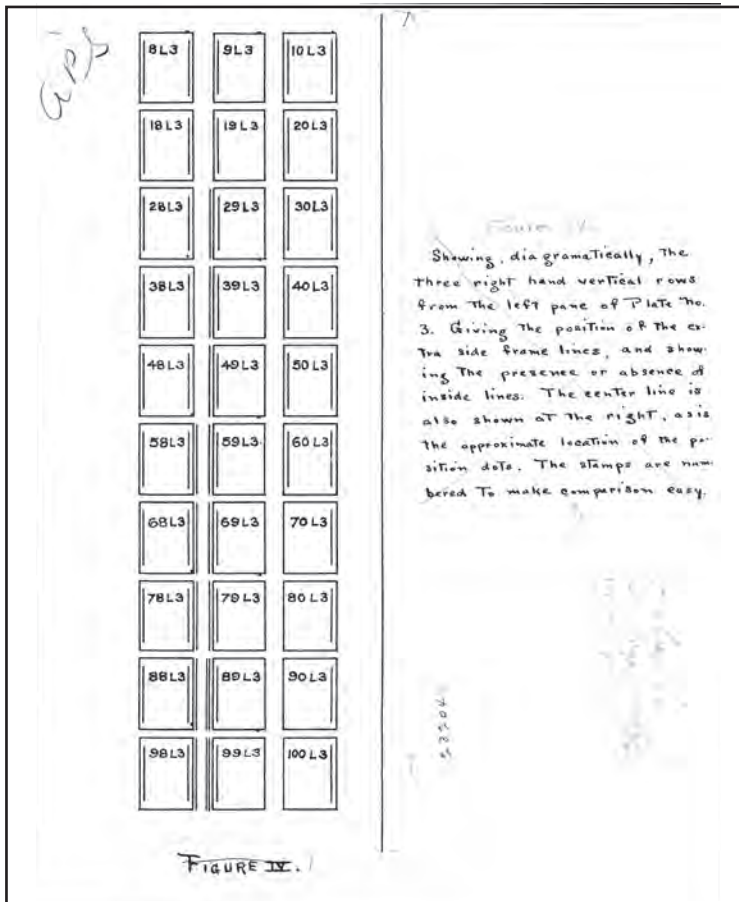 GPS
8L3 9L3 10L3
18L3 19L3 20L3
28L3 29L3 30L3
38L3 39L3 40L3
48L3 49L3 50L3
58L3 59L3 60L3
68L3 69L3 70L3
78L3 79L3 80L3
88L3 89L3 90L3
98L3 99L3 100L3
FIGURE IV.
Figure IV.
Showing, diagramatically, the
three right hand vertical rows
from the left pane of Plate No.
3. Giving the position of the ex-
tra side frame lines, and show-
ing the presence or absence of
inside lines. The center line is
also shown at the right, as is
the approximate location of the po-
sition dots. The stamps are num-
bered to make comparison easy.